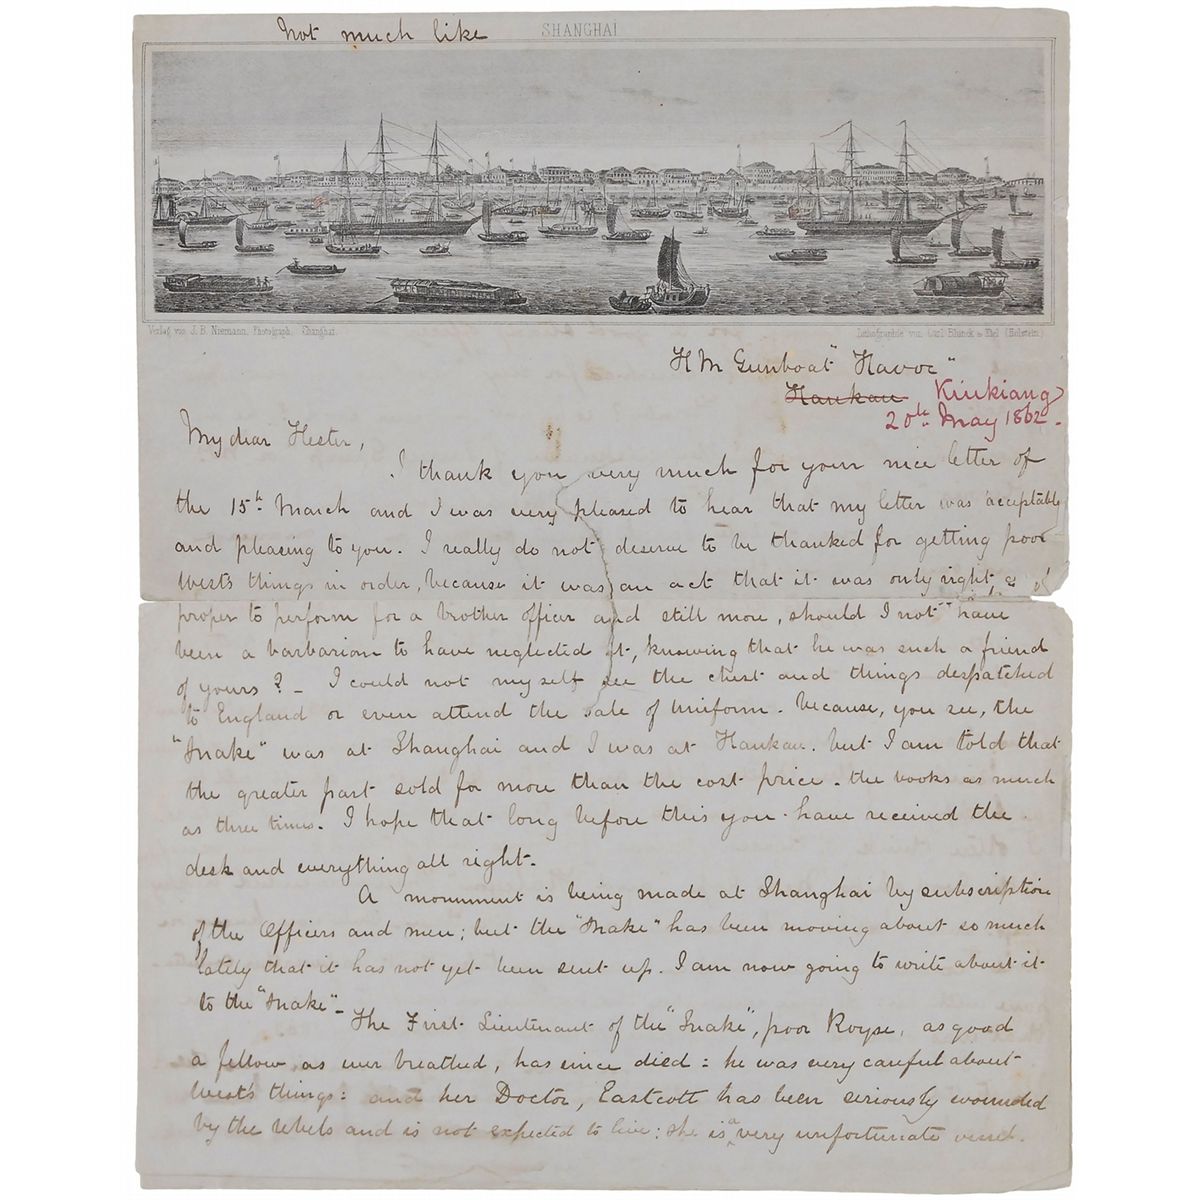 Not much like
SHANGHAI
Verlag von J. B. Niemann, Photograph. Shanghai.
Lithographie von Carl Blunck in Kiel (Holstein)
H M Gunboat "Havoc"
Hankau Kiukiang
20th May 1862.
My dear Hester,
I thank you very much for your nice letter of
the 15th March and I was very pleased to hear that my letter was acceptable
and pleasing to you. I really do not deserve to be thanked for getting poor
West's things in order, because it was an act that it was only right &
proper to perform for a brother officer and still more, should I not have
been a barbarian to have neglected it, knowing that he was such a friend
of yours? - I could not myself see the chest and things despatched
to England or even attend the sale of Uniform. because, you see, the
"Snake" was at Shanghai and I was at Hankau. but I am told that
the greater part sold for more than the cost price. the books as much
as three times. I hope that long before this you have received the
desk and everything all right.
A monument is being made at Shanghai by subscription
of the Officers and men; but the "Snake" has been moving about so much
lately that it has not yet been sent up. I am now going to write about it
to the "Snake" -
The First Lieutenant of the "Snake", poor Royse, as good
a fellow as ever breathed, has since died: he was very careful about
West's things: and her Doctor, Eastcott has been seriously wounded
by the rebels and is not expected to live; she is a very unfortunate vessel.